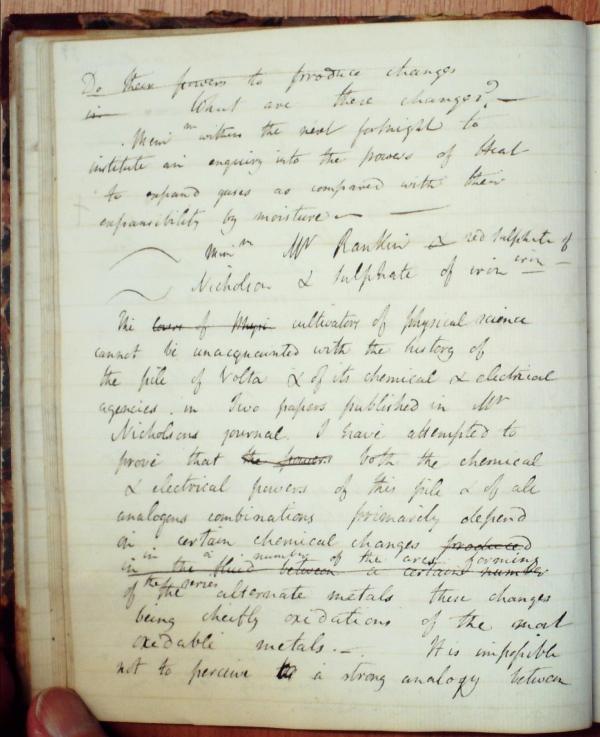 Do their powers to produce changes
in What are these changes? —
Mem^m within the next fortnight to
institute an enquiry into the powers of Heat
to expand gases as compared with their
expansibility by moisture — —
Mem^m Mr Rankin & red sulphate of
Nicholson & sulphate of iron iron —
The laws of Physic cultivators of physical science
cannot be unacquainted with the history of
the pile of Volta & of its chemical & electrical
agencies. in Two papers published in Mr
Nicholsons journal. I have attempted to
prove that the powers both the chemical
& electrical powers of this pile & of all
analogous combinations primarily depend
on certain chemical changes produced
in a number of the arcs forming
in the fluid between a certain number
the series
of the alternate metals these changes
being cheifly oxidations of the most
oxidable metals. —. It is impossible
not to perceive a strong analogy between